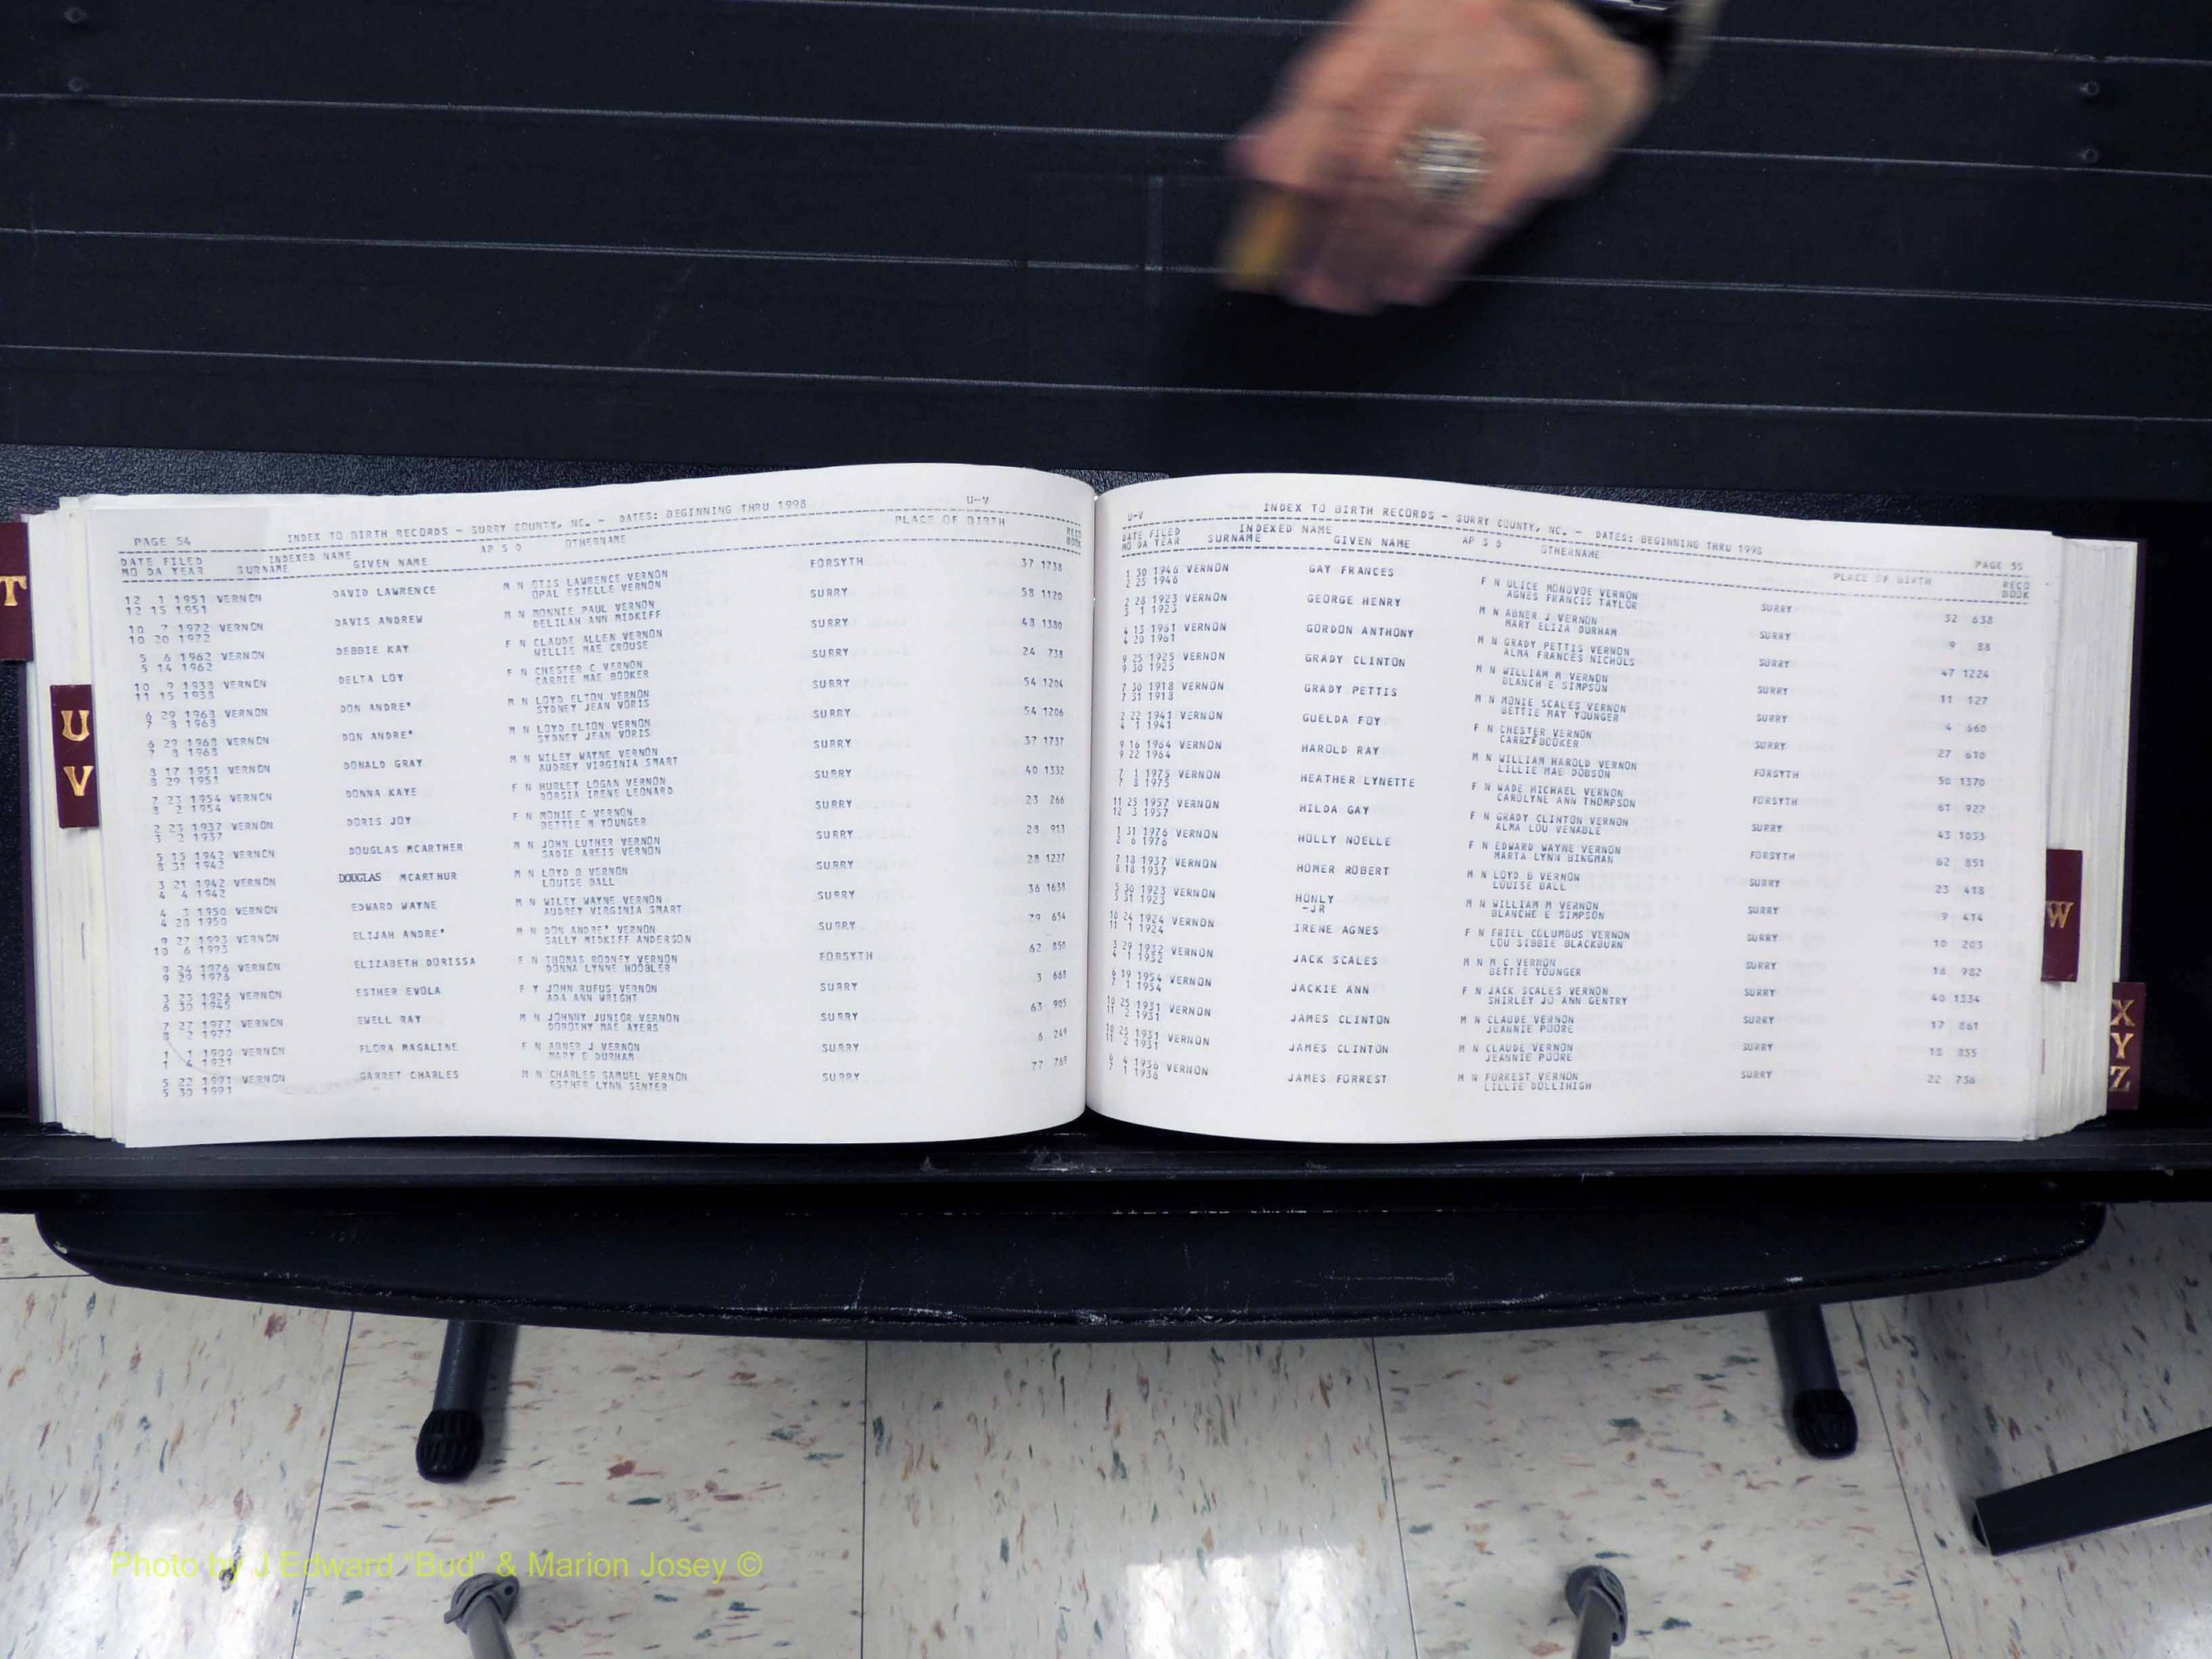 T
U
V
PAGE 54 INDEX TO BIRTH RECORDS - SURRY COUNTY, NC. - DATES: BEGINNING THRU 1998 U-V
DATE FILED INDEXED NAME PLACE OF BIRTH RECD
MO DA YEAR SURNAME GIVEN NAME AP S D OTHERNAME BOOK
12 1 1951 VERNON DAVID LAWRENCE M N OTIS LAWRENCE VERNON FORSYTH 37 1738
12 15 1951 OPAL ESTELLE VERNON
10 7 1972 VERNON DAVIS ANDREW M N MONNIE PAUL VERNON SURRY 58 1120
10 20 1972 DELILAH ANN MIDKIFF
5 6 1962 VERNON DEBBIE KAY F N CLAUDE ALLEN VERNON SURRY 48 1380
5 14 1962 WILLIE MAE CROUSE
10 9 1938 VERNON DELTA LOY F N CHESTER C VERNON SURRY 24 738
11 15 1938 CARRIE MAE BOOKER
6 29 1968 VERNON DON ANDRE' M N LOYD ELTON VERNON SURRY 54 1204
7 8 1968 SYDNEY JEAN VORIS
6 29 1968 VERNON DON ANDRE' M N LOYD ELTON VERNON SURRY 54 1206
7 8 1968 SYDNEY JEAN VORIS
8 17 1951 VERNON DONALD GRAY M N WILEY WAYNE VERNON SURRY 37 1737
8 29 1951 AUDREY VIRGINIA SMART
7 23 1954 VERNON DONNA KAYE F N HURLEY LOGAN VERNON SURRY 40 1332
8 2 1954 DORSIA IRENE LEONARD
2 23 1937 VERNON DORIS JOY F N MONIE C VERNON SURRY 23 266
3 2 1937 BETTIE M YOUNGER
5 15 1942 VERNON DOUGLAS MCARTHER M N JOHN LUTHER VERNON SURRY 28 913
8 31 1942 SADIE AREIS VERNON
3 21 1942 VERNON DOUGLAS MCARTHUR M N LOYD B VERNON SURRY 28 1227
4 4 1942 LOUISE BALL
4 3 1950 VERNON EDWARD WAYNE M N WILEY WAYNE VERNON SURRY 36 1638
4 28 1950 AUDREY VIRGINIA SMART
9 27 1993 VERNON ELIJAH ANDRE' M N DON ANDRE' VERNON SURRY 79 654
10 6 1993 SALLY MIDKIFF ANDERSON
9 24 1976 VERNON ELIZABETH DORISSA F N THOMAS RODNEY VERNON FORSYTH 62 850
9 29 1976 DONNA LYNNE HOOBLER
3 23 1926 VERNON ESTHER EVOLA F Y JOHN RUFUS VERNON SURRY 3 668
6 30 1945 ADA ANN WRIGHT
7 27 1977 VERNON EWELL RAY M N JOHNNY JUNIOR VERNON SURRY 63 905
8 2 1977 DOROTHY MAE AYERS
1 1 1900 VERNON FLORA MAGALINE F N ABNER J VERNON SURRY 6 249
1 4 1921 MARY E DURHAM
5 22 1991 VERNON GARRET CHARLES M N CHARLES SAMUEL VERNON SURRY 77 769
5 30 1991 ESTHER LYNN SENTER
U-V INDEX TO BIRTH RECORDS - SURRY COUNTY, NC. - DATES: BEGINNING THRU 1998 PAGE 55
DATE FILED INDEXED NAME PLACE OF BIRTH RECD
MO DA YEAR SURNAME GIVEN NAME AP S D OTHERNAME BOOK
1 30 1946 VERNON GAY FRANCES F N ULICE MONOVOE VERNON SURRY 32 638
2 25 1946 AGNES FRANCIS TAYLOR
2 28 1923 VERNON GEORGE HENRY M N ABNER J VERNON SURRY 9 88
3 1 1923 MARY ELIZA DURHAM
4 13 1961 VERNON GORDON ANTHONY M N GRADY PETTIS VERNON SURRY 47 1224
4 20 1961 ALMA FRANCES NICHOLS
9 25 1925 VERNON GRADY CLINTON M N WILLIAM M VERNON SURRY 11 127
9 30 1925 BLANCH E SIMPSON
7 30 1918 VERNON GRADY PETTIS M N MONIE SCALES VERNON SURRY 4 660
7 31 1918 BETTIE MAY YOUNGER
2 22 1941 VERNON GUELDA FOY F N CHESTER VERNON SURRY 27 610
4 1 1941 CARRIE BOOKER
9 16 1964 VERNON HAROLD RAY M N WILLIAM HAROLD VERNON FORSYTH 50 1370
9 22 1964 LILLIE MAE DOBSON
7 1 1975 VERNON HEATHER LYNETTE F N WADE MICHAEL VERNON FORSYTH 61 922
7 8 1975 CAROLYNE ANN THOMPSON
11 25 1957 VERNON HILDA GAY F N GRADY CLINTON VERNON SURRY 43 1053
12 3 1957 ALMA LOU VENABLE
1 31 1976 VERNON HOLLY NOELLE F N EDWARD WAYNE VERNON FORSYTH 62 851
2 6 1976 MARTA LYNN BINGMAN
7 18 1937 VERNON HOMER ROBERT M N LOYD B VERNON SURRY 23 418
8 18 1937 LOUISE BALL
5 30 1923 VERNON HONLY M N WILLIAM M VERNON SURRY 9 414
5 31 1923 -JR BLANCHE E SIMPSON
10 24 1924 VERNON IRENE AGNES F N FRIEL COLUMBUS VERNON SURRY 10 203
11 1 1924 LOU SIBBIE BLACKBURN
3 29 1932 VERNON JACK SCALES M N M C VERNON SURRY 18 982
4 1 1932 BETTIE YOUNGER
6 19 1954 VERNON JACKIE ANN F N JACK SCALES VERNON SURRY 40 1334
7 1 1954 SHIRLEY JO ANN GENTRY
10 25 1931 VERNON JAMES CLINTON M N CLAUDE VERNON SURRY 17 861
11 2 1931 JEANNIE POORE
10 25 1931 VERNON JAMES CLINTON M N CLAUDE VERNON SURRY 18 855
11 2 1931 JEANNIE POORE
6 4 1936 VERNON JAMES FORREST M N FORREST VERNON SURRY 22 736
7 1 1936 LILLIE DOLLIHIGH
W
X
Y
Z
Photo by J Edward "Bud" & Marion Josey ©